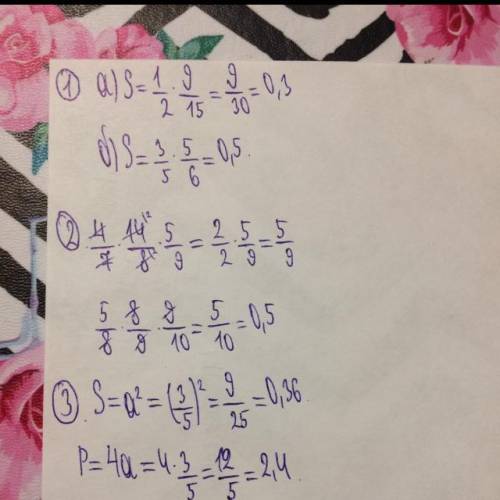 ① a) S = 1/2 · 9/15 = 9/30 = 0,3
б) S = 3/5 · 5/6 = 0,5.
② 4/7 · 14²/8² · 5/9 = 2/2 · 5/9 = 5/9
5/8 · 8/9 · 9/10 = 5/10 = 0,5
③ S = a² = (3/5)² = 9/25 = 0,36.
P = 4a = 4 · 3/5 = 12/5 = 2,4.